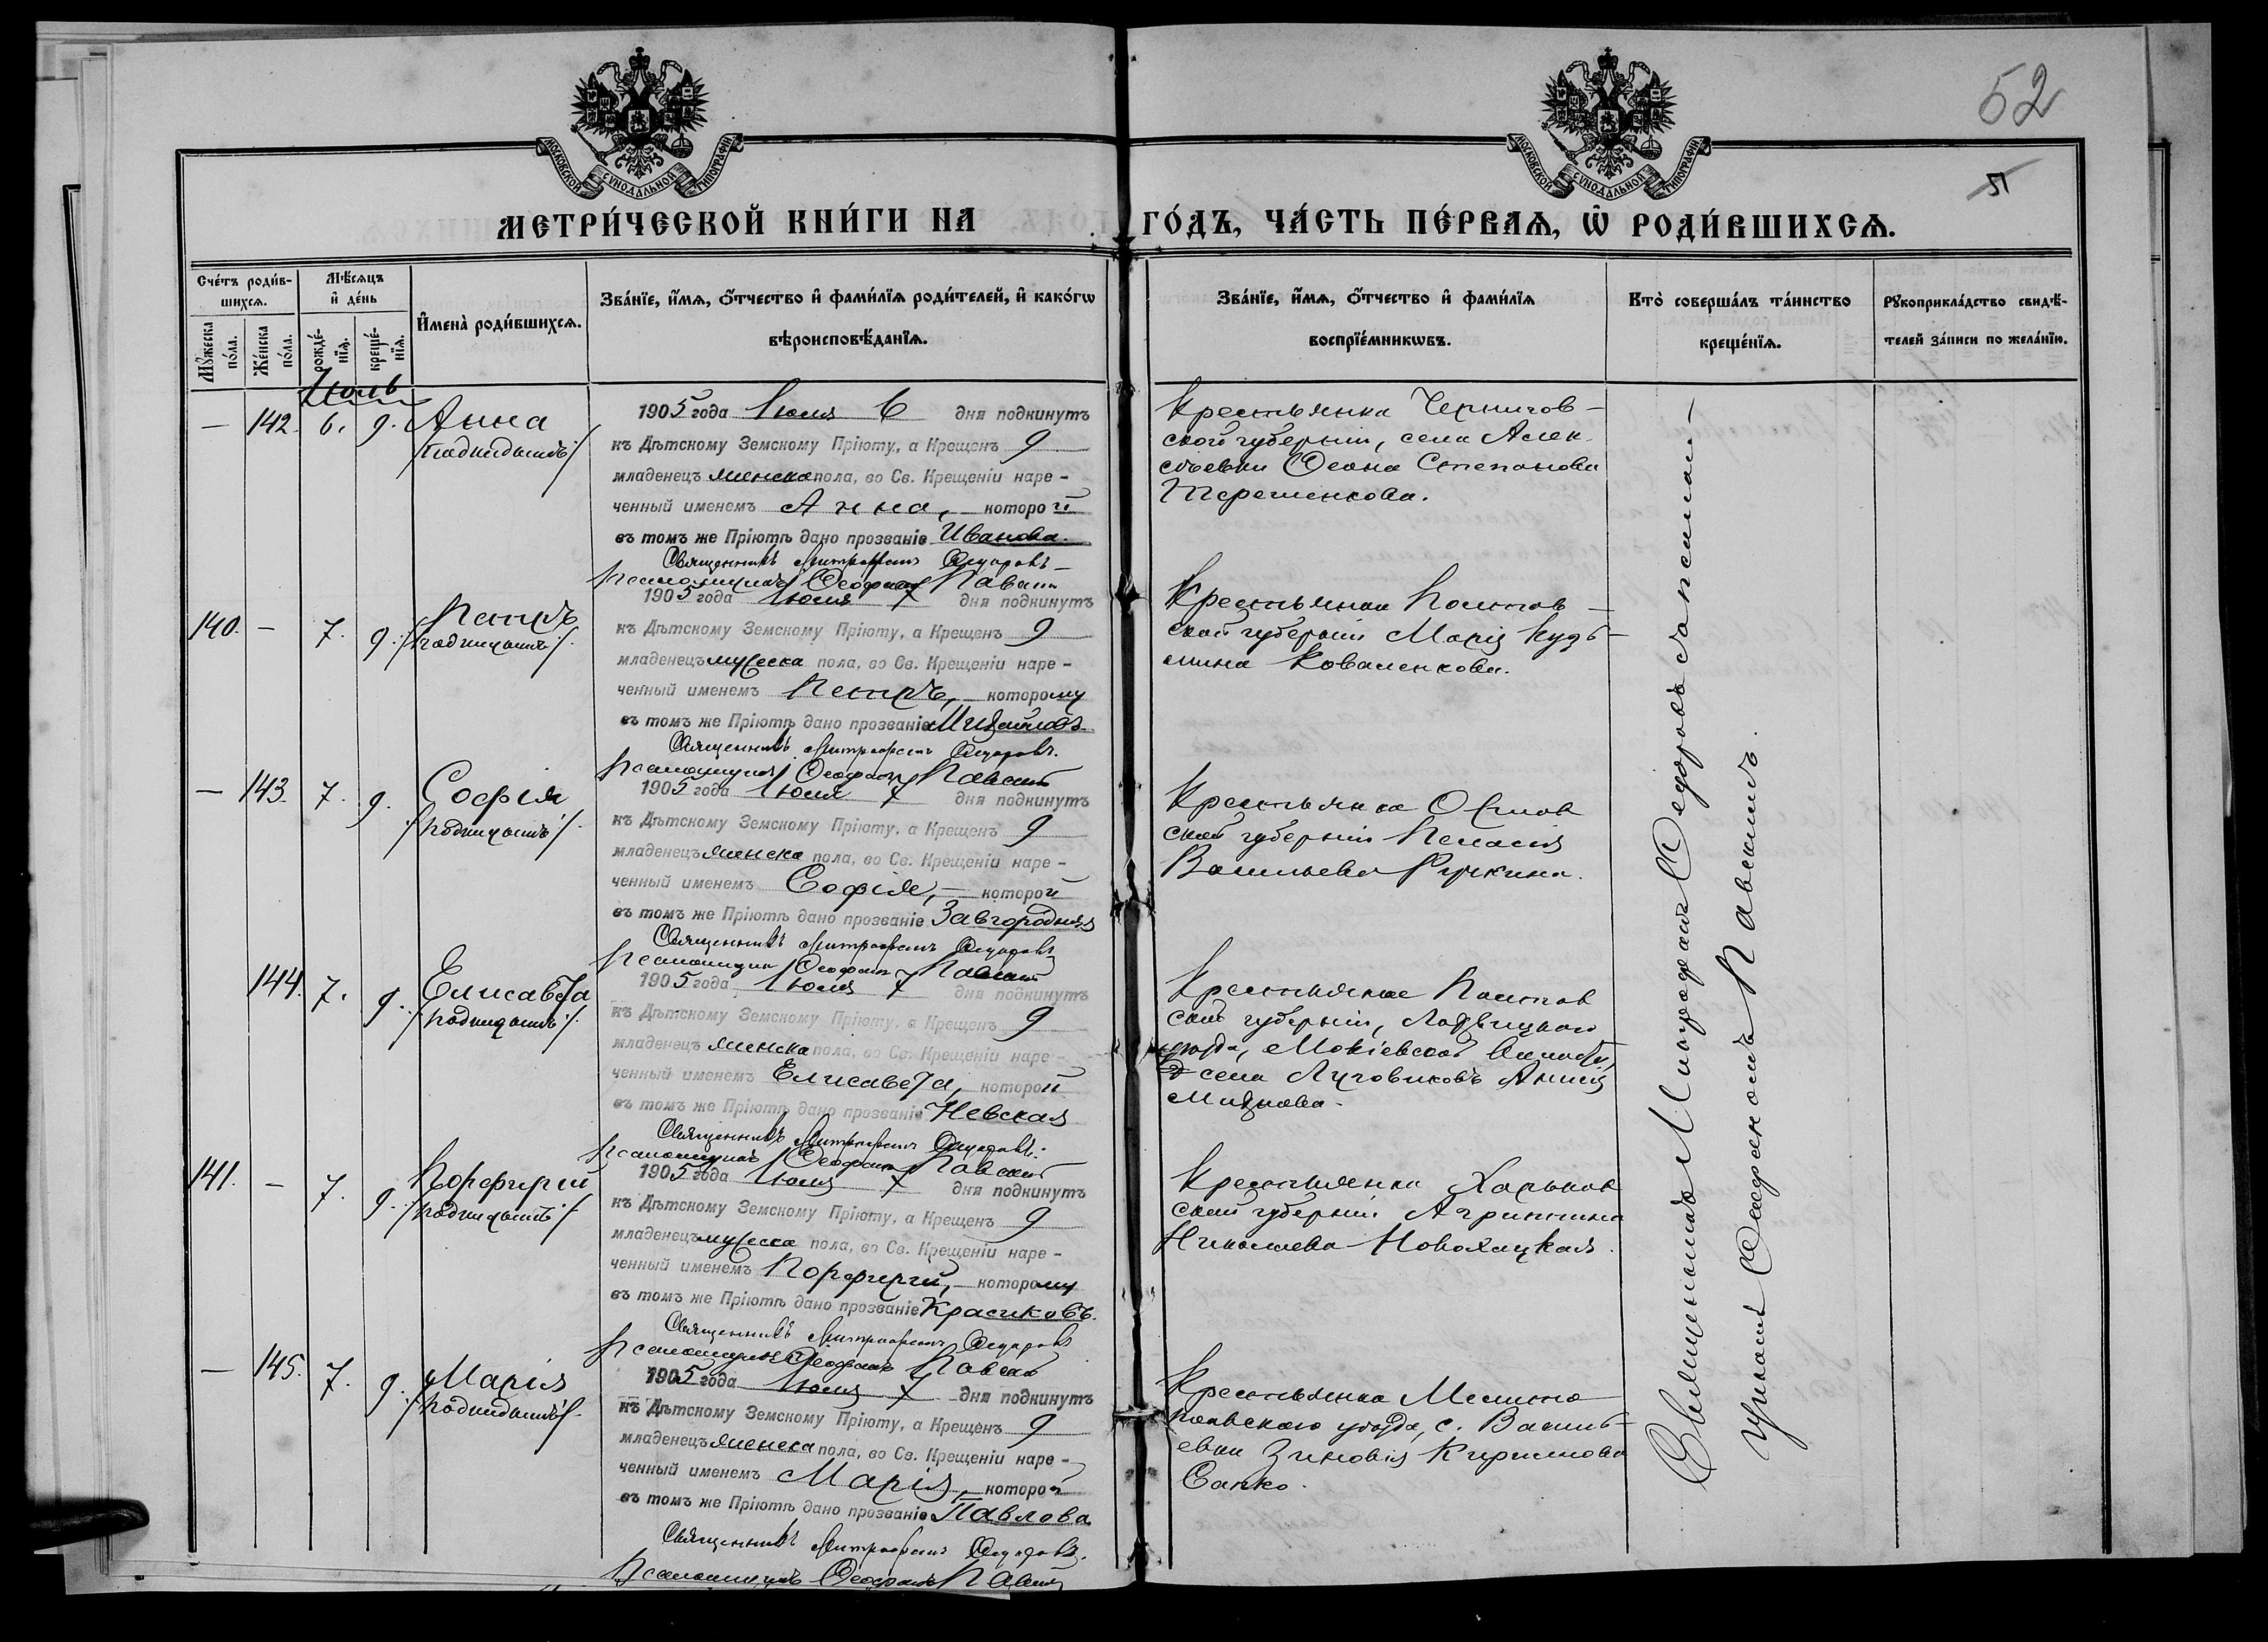 52
51
МОСКОВСКОЙ СѴНОДАЛЬНОЙ ТИПОГРАФІИ
МОСКОВСКОЙ СѴНОДАЛЬНОЙ ТИПОГРАФІИ
МЕТРИ́ЧЕСКОЙ КНИ́ГИ НА ГО́ДЪ, ЧА́СТЬ ПЕ́РВАѦ, Ѿ РОДИ́ВШИХСѦ.
Сче́тъ роди́в-
шихсѧ.
Мꙋжеска по́ла.
Же́нска по́ла.
Мѣ́сѧцъ и҆ де́нь
рожде́-нїѧ.
креще́-нїѧ.
И҆мена̀ роди́вшихсѧ.
Зва́нїе, и҆́мѧ, ѻ҆́тчество и҆ фами́лїѧ роди́телей, и҆ како́гѡ
вѣроисповѣ́данїѧ.
Зва́нїе, и҆́мѧ, ѻ҆́тчество и҆ фами́лїѧ
воспрїе́мникѡвъ.
Кто̀ соверша́лъ та́инство
креще́нїѧ.
Рꙋкоприкла́дство свидѣ́-
телей за́писи по жела́нїю.
Іюль
— 142. 6. 9. Анна
/подкидышъ/
1905 года Іюля 6 дня подкинутъ
къ Дѣтскому Земскому Пріюту, а Крещенъ 9
младенецъ женска пола, во Св. Крещеніи наре -
ченный именемъ Анна, — которой
въ томъ же Пріютѣ дано прозваніе Иванова.
Священникъ Митрофанъ Ѳедоровъ
Псаломщикъ Ѳеофанъ
Крестьянка Чернигов-
ской губерніи, села Алек-
сѣевки Ѳеона Степанова
Терещенкова.
140. — 7. 9. Петръ
/подкидышъ/
1905 года Іюля 7 дня подкинутъ
къ Дѣтскому Земскому Пріюту, а Крещенъ 9
младенецъ мужеска пола, во Св. Крещеніи наре -
ченный именемъ Петръ, — которому
въ томъ же Пріютѣ дано прозваніе Михайловъ.
Священникъ Митрофанъ Ѳедоровъ.
Псаломщикъ Ѳеофанъ
Крестьянка Полтав-
ской губерніи Марія Кузь-
мина Коваленкова.
— 143. 7. 9. Софія
/подкидышъ/
1905 года Іюля 7 дня подкинутъ
къ Дѣтскому Земскому Пріюту, а Крещенъ 9
младенецъ женска пола, во Св. Крещеніи наре -
ченный именемъ Софія, — которой
въ томъ же Пріютѣ дано прозваніе Завгородняя
Священникъ Митрофанъ Ѳедоровъ
Псаломщикъ Ѳеофанъ
Крестьянка Орлов
ской губерніи Пелагія
Васильева
144. 7. 9. Елисавета
/подкидышъ/
1905 года Іюля 7 дня подкинутъ
къ Дѣтскому Земскому Пріюту, а Крещенъ 9
младенецъ женска пола, во Св. Крещеніи наре -
ченный именемъ Елисавета, которой
въ томъ же Пріютѣ дано прозваніе Невская
Священникъ Митрофанъ Ѳедоровъ.
Псаломщикъ Ѳеофанъ
Крестьянка Полтав
ской губерніи, Лохвицкаго
уѣзда, Мокіевской волости,
села Луговиковъ
141. — 7. 9. Порфирій
/подкидышъ/
1905 года Іюля 7 дня подкинутъ
къ Дѣтскому Земскому Пріюту, а Крещенъ 9
младенецъ мужеска пола, во Св. Крещеніи наре -
ченный именемъ Порфирій, — которому
въ томъ же Пріютѣ дано прозваніе Красиковъ.
Священникъ Митрофанъ Ѳедоровъ
Псаломщикъ Ѳеофанъ
Крестьянка Харьков
ской губерніи Агрипина
Николаева Новохацкая.
— 145. 7. 9. Марія
/подкидышъ/
1905 года Іюля 7 дня подкинутъ
къ Дѣтскому Земскому Пріюту, а Крещенъ 9
младенецъ женска пола, во Св. Крещеніи наре -
ченный именемъ Марія, — которой
въ томъ же Пріютѣ дано прозваніе Павлова
Священникъ Митрофанъ Ѳедоровъ.
Псаломщикъ Ѳеофанъ
Крестьянка Мелито-
польскаго уѣзда, с. Василь-
евки Зиновія Кириллова
Сапко.
Священникъ Митрофанъ Ѳедоровъ съ псалом-
щикомъ